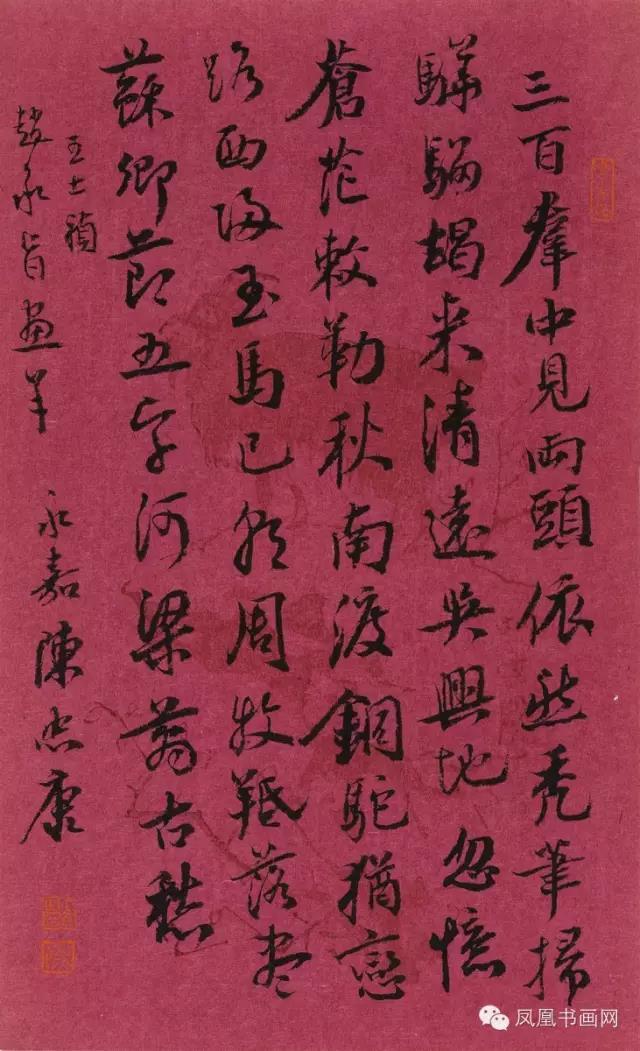 三百羣中見兩頭依然禿筆掃
驊騮朅来清遠吳興地忽憶
蒼茫敕勒秋南渡銅駝猶戀
路西歸玉馬已朝周牧羝落盡
蘇卿節五字河梁萬古愁
王士禎
趙承旨畫羊 永嘉陳忠康
凤凰书画网